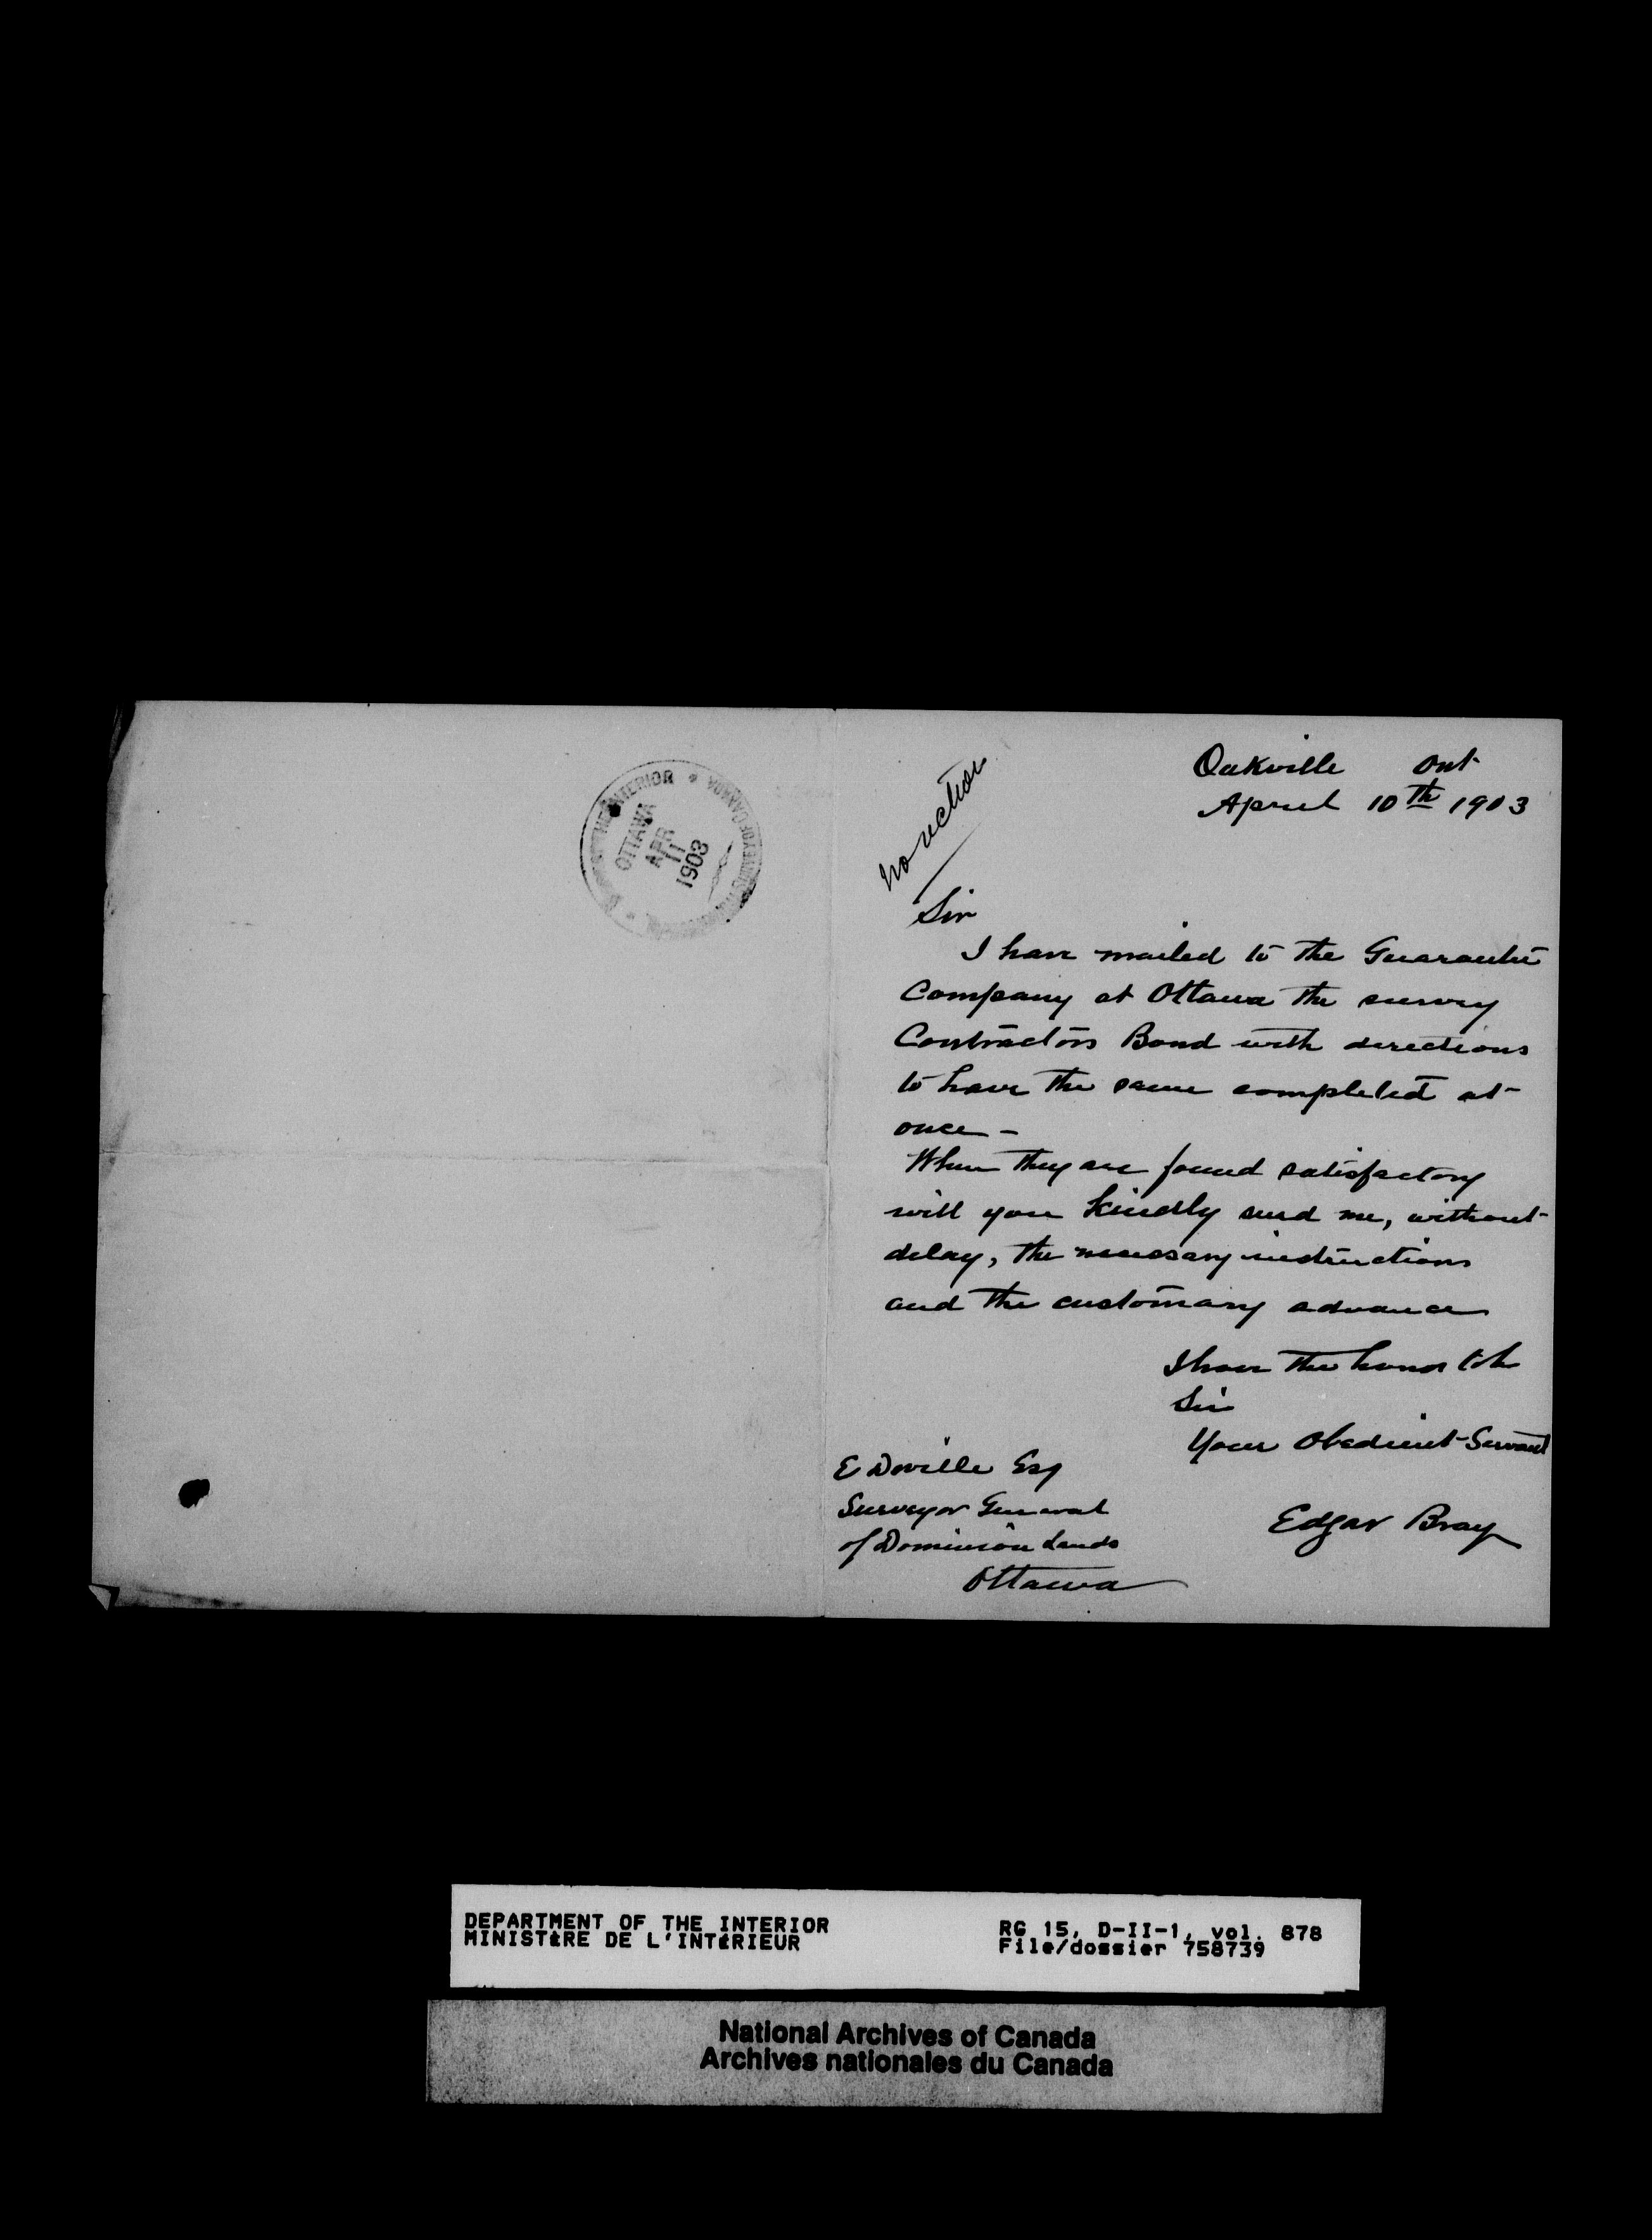 INTERIOR * 
OTTAWA
APR
11
1903
no action
Oakville Ont
April 10th 1903
Sir
I have mailed to the Guarantee
Company at Ottawa the survey
Contractors Bond with directions
to have the same completed at
once -
When they are found satisfactory
will you kindly send me, without
delay, the necessary instructions
and the customary advance
I have the honor to be
Sir
Your Obedient Servant
Edgar Bray
E Deville Esq
Surveyor General
of Dominion Lands
Ottawa
DEPARTMENT OF THE INTERIOR
MINISTÈRE DE L'INTÉRIEUR
RG 15, D-II-1, vol. 878
File/dossier 758739
National Archives of Canada
Archives nationales du Canada